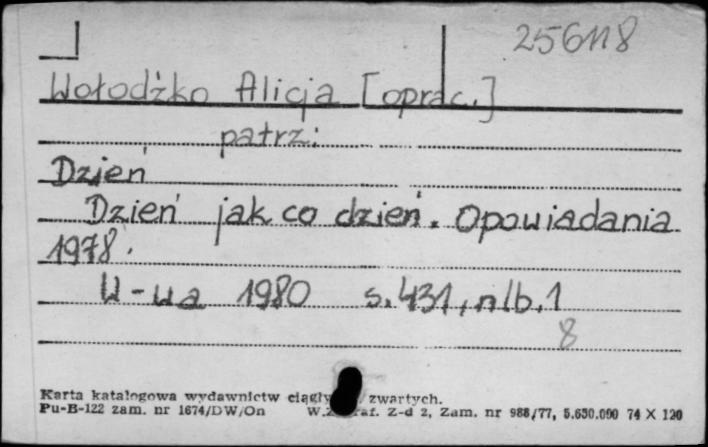 256118
Wołodźko Alicja [oprac.]
patrz:
Dzień
Dzień jak co dzień. Opowiadania
1978.
W-wa 1980 s. 431, nlb. 1
8
Karta katalogowa wydawnictw zwartych.
Pu-B-122 zam. nr 1674/DW/On Z-d 2, Zam. nr 988/77, 5.630.000 74 X 120